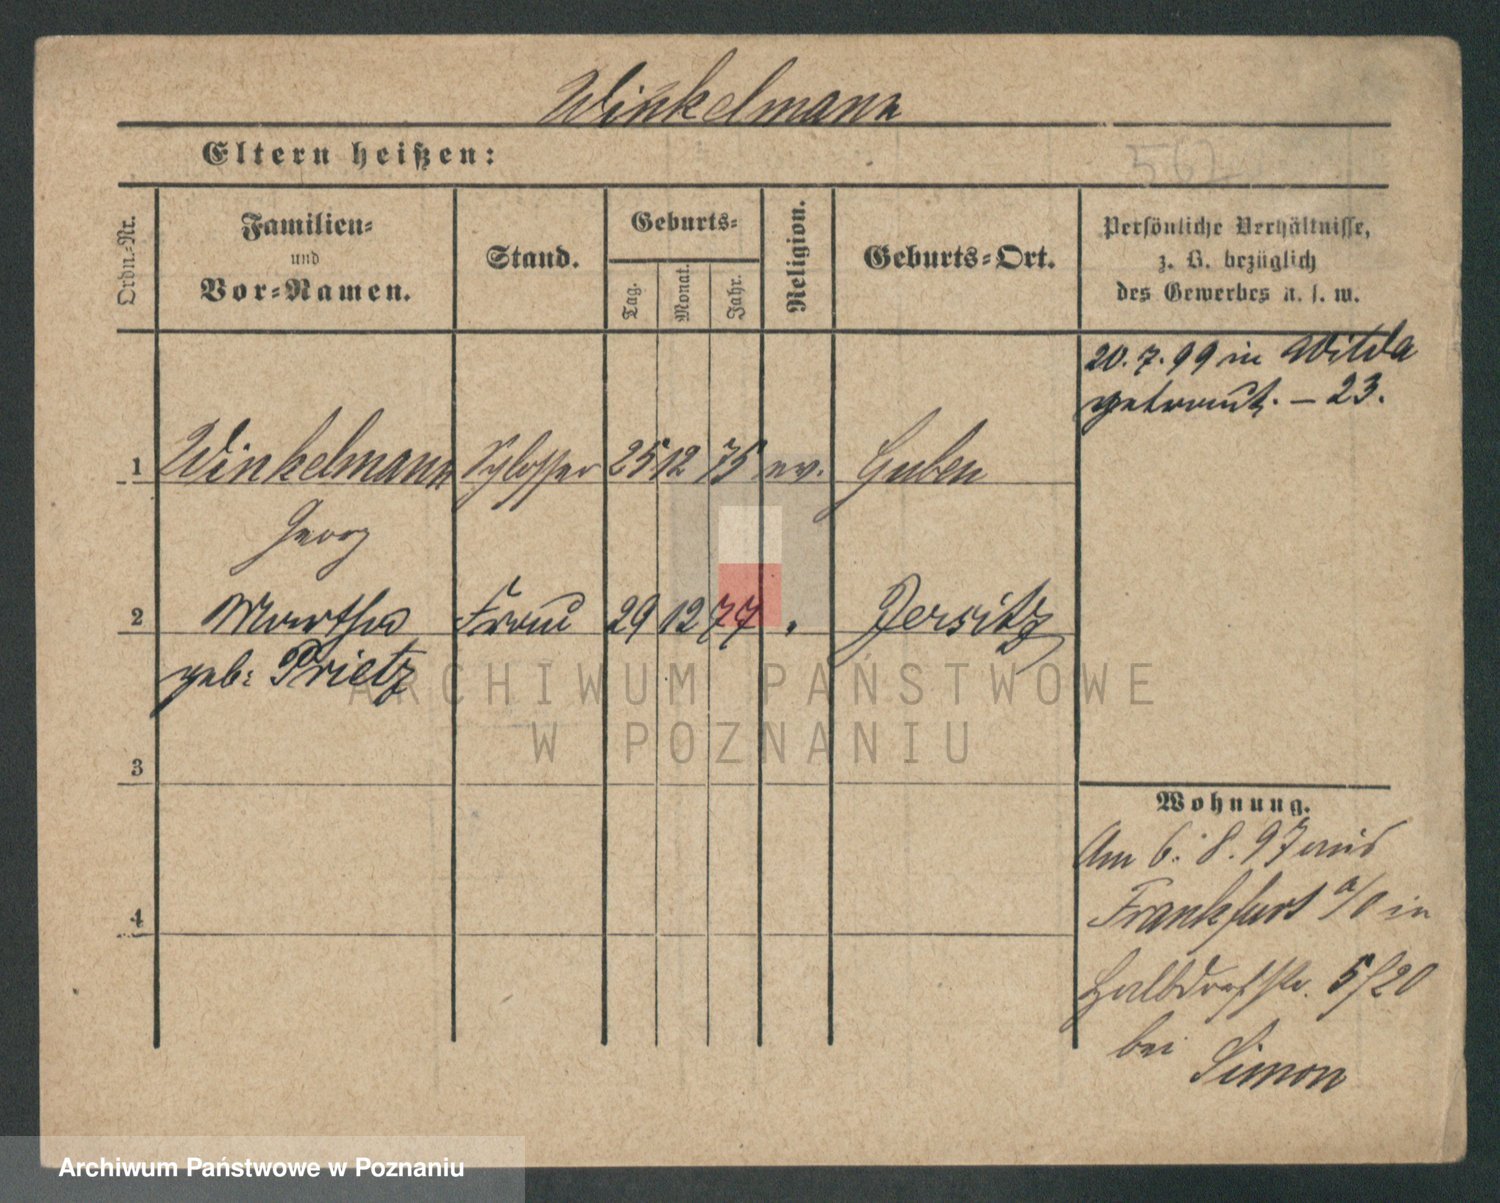 Winkelmann
Eltern heißen:
562
Ordn.-Nr.
Familien-
und
Vor-Namen.
Stand.
Geburts-
Tag.
Monat.
Jahr.
Religion.
Geburts-Ort.
Persönliche Verhältnisse,
z. B. bezüglich
des Gewerbes u. s. w.
20. 7. 99 in Wilda
getraut. – 23.
1 Winkelmann Schlosser 25 12 75 ev. Guben
Georg
2 Martha Frau 29 12 77 " Jersitz
geb: Prietz
ARCHIWUM PAŃSTWOWE
W POZNANIU
3
Wohnung.
Am 6. 8. 97 aus
Frankfurt a/O in
4
Halbdorfstr. 5/20
bei Simon
Archiwum Państwowe w Poznaniu